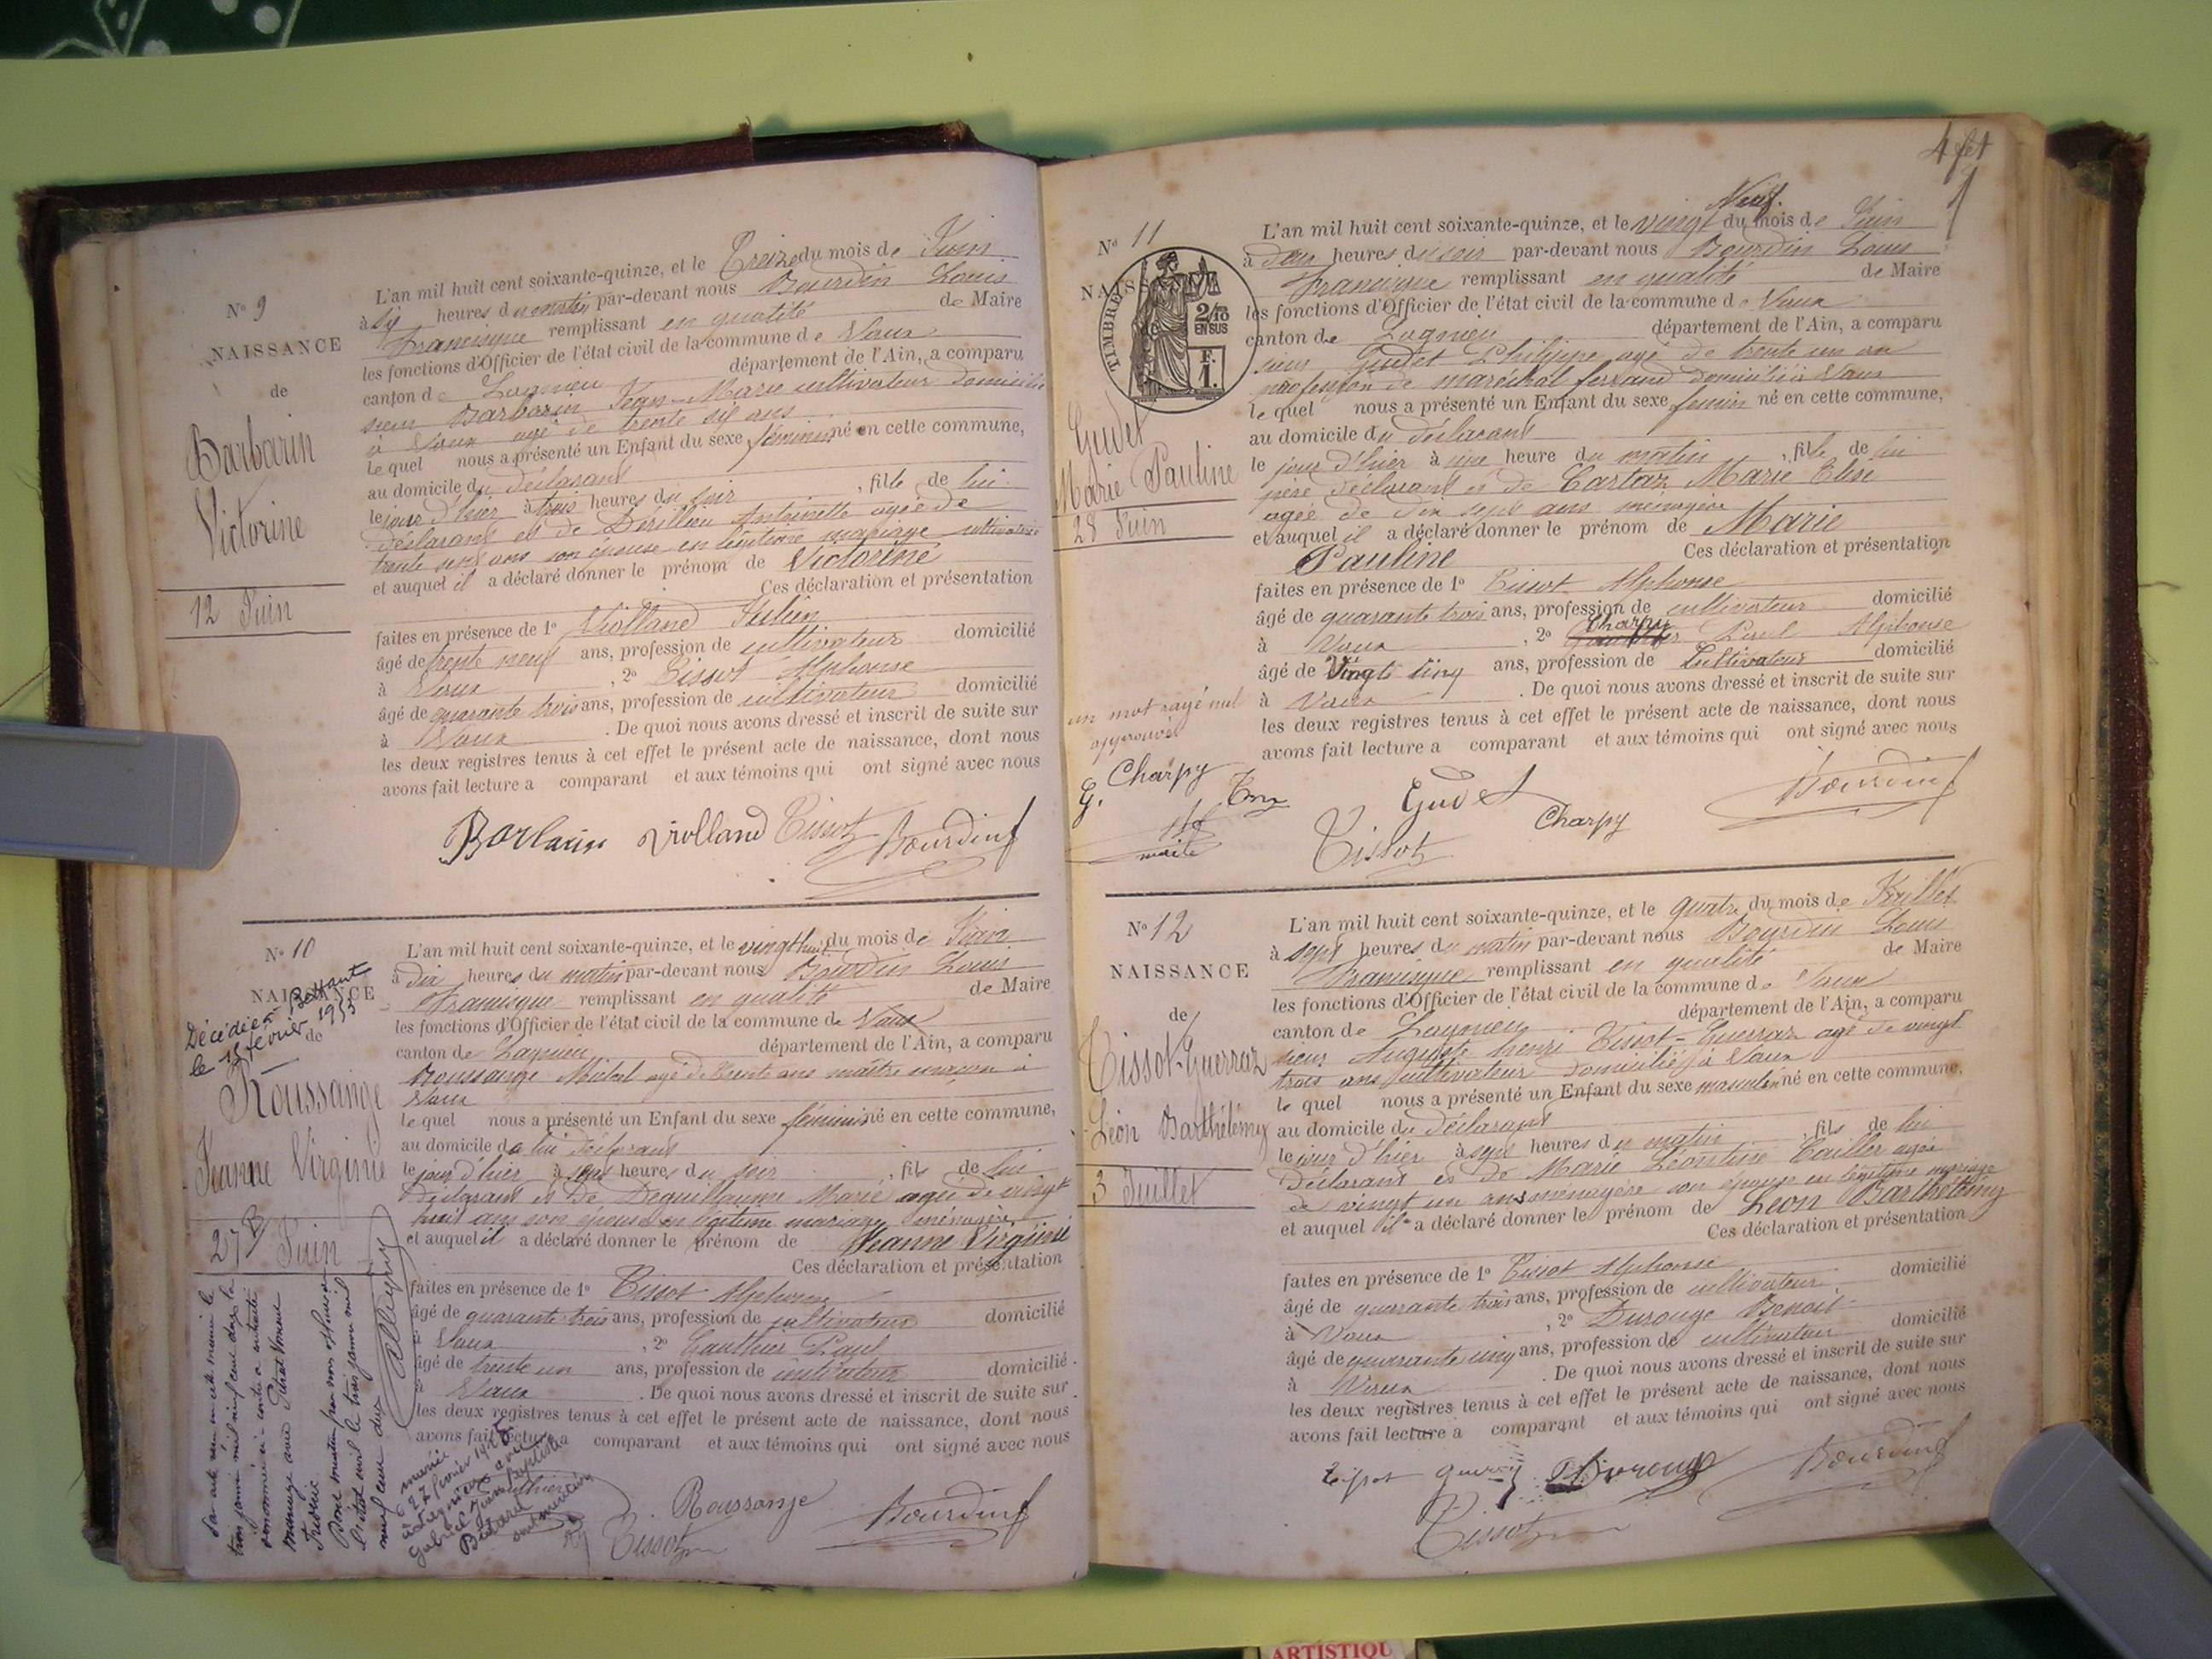 N° 9
NAISSANCE
de
Barbarin
Victorine
12 Juin
L'an mil huit cent soixante-quinze, et le Treize du mois de Juin
à six heures du matin par-devant nous Bourdin Louis
Francisque remplissant en qualité de Maire
les fonctions d'Officier de l'état civil de la commune de Vaux
canton de Lagnieu département de l'Ain, a comparu
sieur Barbarin Jean-Marie cultivateur domicilié
à Vaux agé de trente six ans
le quel nous a présenté un Enfant du sexe féminin né en cette commune,
au domicile du déclarant
le jour d'hier à trois heures du soir, fille de lui
déclarant et de Antoinette agée de
trente ans son épouse en légitime mariage
et auquel il a déclaré donner le prénom de Victorine
Ces déclaration et présentation
faites en présence de 1° Violland Julien
âgé de trente neuf ans, profession de cultivateur domicilié
à Vaux, 2° Tissot Alphonse
âgé de quarante trois ans, profession de cultivateur domicilié
à Vaux. De quoi nous avons dressé et inscrit de suite sur
les deux registres tenus à cet effet le présent acte de naissance, dont nous
avons fait lecture a comparant et aux témoins qui ont signé avec nous
Barbarin Violland Tissot Bourdin f
N° 10
NAISSANCE
de
Décédée à Bettant
le 15 février 1955
Roussange
Jeanne Virginie
27 Juin
L'an mil huit cent soixante-quinze, et le vingt huit du mois de Juin
à dix heures du matin par-devant nous Bourdin Louis
Francisque remplissant en qualité de Maire
les fonctions d'Officier de l'état civil de la commune de Vaux
canton de Lagnieu département de l'Ain, a comparu
Roussange Michel agé de trente ans maître maçon à
Vaux
le quel nous a présenté un Enfant du sexe féminin né en cette commune,
au domicile de lui déclarant
le jour d'hier à sept heures du soir, fille de lui
déclarant et de Deguillaume Marie agée de vingt
huit ans son épouse en légitime mariage ménagère
et auquel il a déclaré donner le prénom de Jeanne Virginie
Ces déclaration et présentation
faites en présence de 1° Tissot Alphonse
âgé de quarante trois ans, profession de cultivateur domicilié
à Vaux, 2° Gauthier Paul
âgé de trente un ans, profession de cultivateur domicilié
à Vaux. De quoi nous avons dressé et inscrit de suite sur
les deux registres tenus à cet effet le présent acte de naissance, dont nous
avons fait lecture a comparant et aux témoins qui ont signé avec nous
Roussange Bourdin f
Tissot
mariée
22 février 19
avec
Gabriel Jean Baptiste
mil neuf cent dix
mariage avec
4 f et
N° 11
NAISS
TIMBRE
2/10
EN SUS
F.
1.
Gudet
Marie Pauline
28 Juin
L'an mil huit cent soixante-quinze, et le vingt Neuf du mois de Juin
à deux heures du soir par-devant nous Bourdin Louis
Francisque remplissant en qualité de Maire
les fonctions d'Officier de l'état civil de la commune de Vaux
canton de Lagnieu département de l'Ain, a comparu
sieur Gudet Philippe agé de trente un an
profession de maréchal ferrand domicilié à Vaux
le quel nous a présenté un Enfant du sexe feminin né en cette commune,
au domicile du déclarant
le jour d'hier à une heure du matin, fille de lui
père déclarant et de Cartaz Marie Elise
agée de dix sept ans ménagère
et auquel il a déclaré donner le prénom de Marie
Pauline Ces déclaration et présentation
faites en présence de 1° Tissot Alphonse
âgé de quarante trois ans, profession de cultivateur domicilié
à Vaux, 2° Charpy Paul Alphonse
âgé de Vingt cinq ans, profession de Cultivateur domicilié
à Vaux. De quoi nous avons dressé et inscrit de suite sur
les deux registres tenus à cet effet le présent acte de naissance, dont nous
avons fait lecture a comparant et aux témoins qui ont signé avec nous
un mot rayé nul
approuvés
G. Charpy
maire
Gudet Charpy Bourdin f
Tissot
N° 12
NAISSANCE
de
Tissot-Guerraz
Léon Barthélémy
3 Juillet
L'an mil huit cent soixante-quinze, et le quatre du mois de Juillet
à sept heures du matin par-devant nous Bourdin Louis
Francisque remplissant en qualité de Maire
les fonctions d'Officier de l'état civil de la commune de Vaux
canton de Lagnieu département de l'Ain, a comparu
sieur Auguste henri Tissot-Guerraz agé de vingt
trois ans cultivateur domicilié à Vaux
le quel nous a présenté un Enfant du sexe masculin né en cette commune,
au domicile du déclarant
le jour d'hier à sept heures du matin, fils de lui
déclarant et de Marie Léontine Tailler agée
de vingt un ans ménagère son épouse en légitime mariage
et auquel il a déclaré donner le prénom de Léon Barthélémy
Ces déclaration et présentation
faites en présence de 1° Tissot Alphonse
âgé de quarante trois ans, profession de cultivateur domicilié
à Vaux, 2° Durouge Benoit
âgé de quarante cinq ans, profession de cultivateur domicilié
à Vaux. De quoi nous avons dressé et inscrit de suite sur
les deux registres tenus à cet effet le présent acte de naissance, dont nous
avons fait lecture a comparant et aux témoins qui ont signé avec nous
Durouge Bourdin f
Tissot
ARTISTIQU